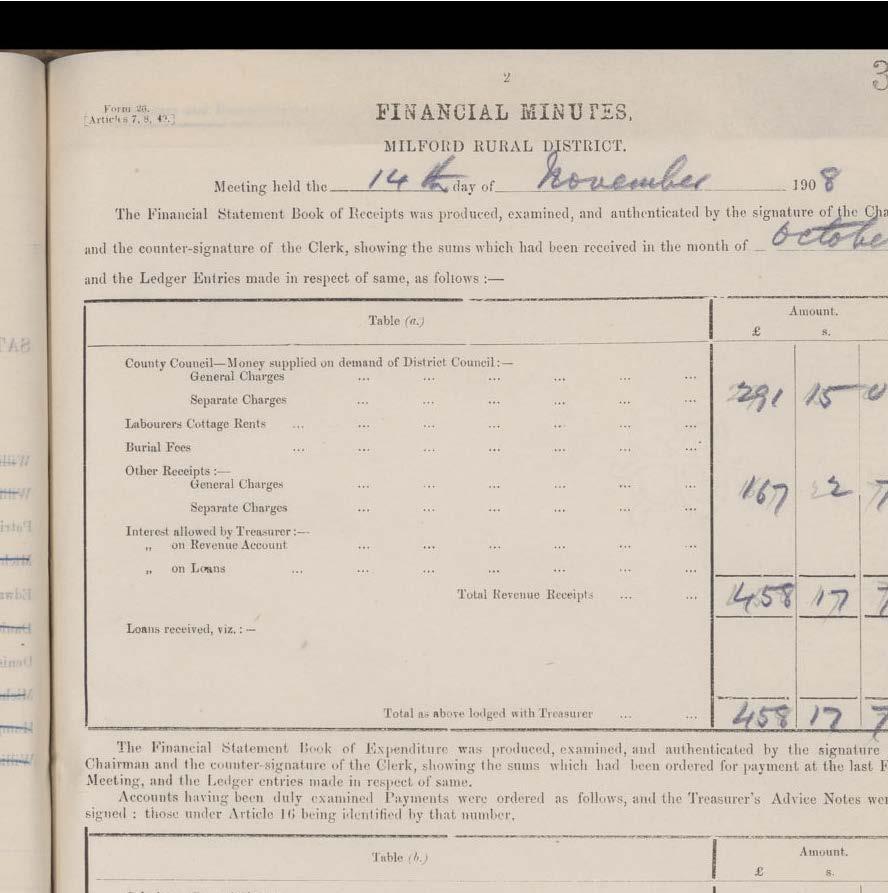 2
3
Form 26.
[Articles 7, 8, 42.]
FINANCIAL MINUTES,
MILFORD RURAL DISTRICT.
Meeting held the 14th day of November 1908
The Financial Statement Book of Receipts was produced, examined, and authenticated by the signature of the Cha
and the counter-signature of the Clerk, showing the sums which had been received in the month of Octobe
and the Ledger Entries made in respect of same, as follows :—
Table (a.) Amount.
£ s.
County Council—Money supplied on demand of District Council:—
General Charges ... ... ... ... ... ...
Separate Charges ... ... ... ... ... ... 291 15 0
Labourers Cottage Rents ... ... ... ... ... ... ...
Burial Fees ... ... ... ... ... ... ...
Other Receipts :—
General Charges ... ... ... ... ... ... 167 2 7
Separate Charges ... ... ... ... ... ...
Interest allowed by Treasurer :—
„ on Revenue Account ... ... ... ... ... ...
„ on Loans ... ... ... ... ... ... ...
Total Revenue Receipts ... ... 458 17 7
Loans received, viz. : —
Total as above lodged with Treasurer ... ... 458 17 7
The Financial Statement Book of Expenditure was produced, examined, and authenticated by the signature
Chairman and the counter-signature of the Clerk, showing the sums which had been ordered for payment at the last F
Meeting, and the Ledger entries made in respect of same.
Accounts having been duly examined Payments were ordered as follows, and the Treasurer's Advice Notes wer
signed : those under Article 16 being identified by that number.
Table (b.) Amount.
£ s.